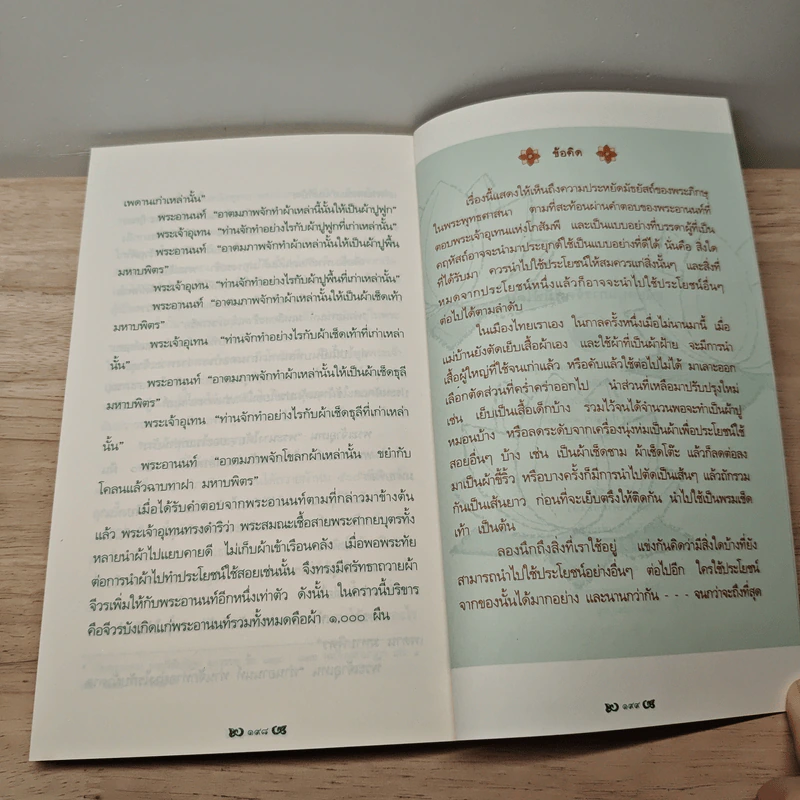 เพดานเก่าเหล่านั้น”
พระอานนท์ “อาตมภาพจักทำผ้าเหล่านี้นั้นให้เป็นผ้าปูฟูก”
พระเจ้าอุเทน “ท่านจักทำอย่างไรกับผ้าปูฟูกที่เก่าเหล่านั้น”
พระอานนท์ “อาตมภาพจักทำผ้าเหล่านั้นให้เป็นผ้าปูพื้น
มหาบพิตร”
พระเจ้าอุเทน “ท่านจักทำอย่างไรกับผ้าปูพื้นที่เก่าเหล่านั้น”
พระอานนท์ “อาตมภาพจักทำผ้าเหล่านั้นให้เป็นผ้าเช็ดเท้า
มหาบพิตร”
พระเจ้าอุเทน “ท่านจักทำอย่างไรกับผ้าเช็ดเท้าที่เก่าเหล่า
นั้น”
พระอานนท์ “อาตมภาพจักทำผ้าเหล่านั้นให้เป็นผ้าเช็ดธุลี
มหาบพิตร”
พระเจ้าอุเทน “ท่านจักทำอย่างไรกับผ้าเช็ดธุลีที่เก่าเหล่า
นั้น”
พระอานนท์ “อาตมภาพจักโขลกผ้าเหล่านั้น ขยำกับ
โคลนแล้วฉาบทาฝา มหาบพิตร”
เมื่อได้รับคำตอบจากพระอานนท์ตามที่กล่าวมาข้างต้น
แล้ว พระเจ้าอุเทนทรงดำริว่า พระสมณะเชื้อสายพระศากยบุตรทั้ง
หลายนำผ้าไปแยบคายดี ไม่เก็บผ้าเข้าเรือนคลัง เมื่อพอพระทัย
ต่อการนำผ้าไปทำประโยชน์ใช้สอยเช่นนั้น จึงทรงมีศรัทธาถวายผ้า
จีวรเพิ่มให้กับพระอานนท์อีกหนึ่งเท่าตัว ดังนั้น ในคราวนี้บริขาร
คือจีวรบังเกิดแก่พระอานนท์รวมทั้งหมดคือผ้า ๑,๐๐๐ ผืน
๑๙๘
ข้อคิด
เรื่องนี้แสดงให้เห็นถึงความประหยัดมัธยัสถ์ของพระภิกษุ
ในพระพุทธศาสนา ตามที่สะท้อนผ่านคำตอบของพระอานนท์ที่
ตอบพระเจ้าอุเทนแห่งโกสัมพี และเป็นแบบอย่างที่บรรดาผู้ที่เป็น
คฤหัสถ์อาจจะนำมาประยุกต์ใช้เป็นแบบอย่างที่ดีได้ นั่นคือ สิ่งใด
ที่ได้รับมา ควรนำไปใช้ประโยชน์ให้สมควรแก่สิ่งนั้นๆ และสิ่งที่
หมดจากประโยชน์หนึ่งแล้วก็อาจจะนำไปใช้ประโยชน์อื่นๆ
ต่อไปได้ตามลำดับ
ในเมืองไทยเราเอง ในกาลครั้งหนึ่งเมื่อไม่นานมานี้ เมื่อ
แม่บ้านยังตัดเย็บเสื้อผ้าเอง และใช้ผ้าที่เป็นผ้าฝ้าย จะมีการนำ
เสื้อผู้ใหญ่ที่ใช้จนเก่าแล้ว หรือคับแล้วใช้ต่อไปไม่ได้ มาเลาะออก
เลือกตัดส่วนที่คร่ำคร่าออกไป นำส่วนที่เหลือมาปรับปรุงใหม่
เช่น เย็บเป็นเสื้อเด็กบ้าง รวมไว้จนได้จำนวนพอจะทำเป็นผ้าปู
หมอนบ้าง หรือลดระดับจากเครื่องนุ่งห่มเป็นผ้าเพื่อประโยชน์ใช้
สอยอื่นๆ บ้าง เช่น เป็นผ้าเช็ดชาม ผ้าเช็ดโต๊ะ แล้วก็ลดต่อลง
มาเป็นผ้าขี้ริ้ว หรือบางครั้งก็มีการนำไปตัดเป็นเส้นๆ แล้วถักรวม
กันเป็นเส้นยาว ก่อนที่จะเย็บตรึงให้ติดกัน นำไปใช้เป็นพรมเช็ด
เท้า เป็นต้น
ลองนึกถึงสิ่งที่เราใช้อยู่ แข่งกันคิดว่ามีสิ่งใดบ้างที่ยัง
สามารถนำไปใช้ประโยชน์อย่างอื่นๆ ต่อไปอีก ใครใช้ประโยชน์
จากของนั้นได้มากอย่าง และนานกว่ากัน - - - จนกว่าจะถึงที่สุด
๑๙๙